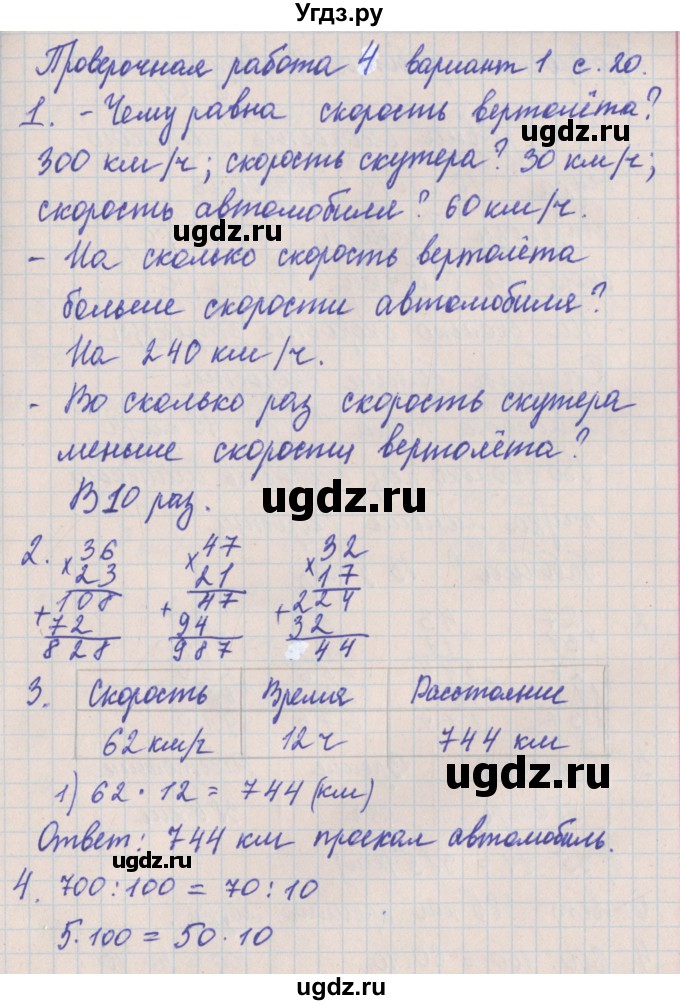 Угдз.ру
Проверочная работа 4 вариант 1 с. 20.
1. - Чему равна скорость вертолёта?
ugdz.ru
300 км/ч; скорость скутера? 30 км/ч;
скорость автомобиля? 60 км/ч.
ugdz.ru
- На сколько скорость вертолёта
больше скорости автомобиля?
ugdz.ru
На 240 км/ч.
- Во сколько раз скорость скутера
меньше скорости вертолёта?
В 10 раз.
ugdz.ru
2. × 36 × 47 × 32
23 21 17
+ 108 + 47 + 224
72 94 32
828 987 44
ugdz.ru
3. Скорость Время Расстояние
62 км/г 12 ч 744 км
ugdz.ru
1) 62 · 12 = 744 (км)
Ответ: 744 км проехал автомобиль.
ugdz.ru
4. 700 : 100 = 70 : 10
5 · 100 = 50 · 10
ugdz.ru